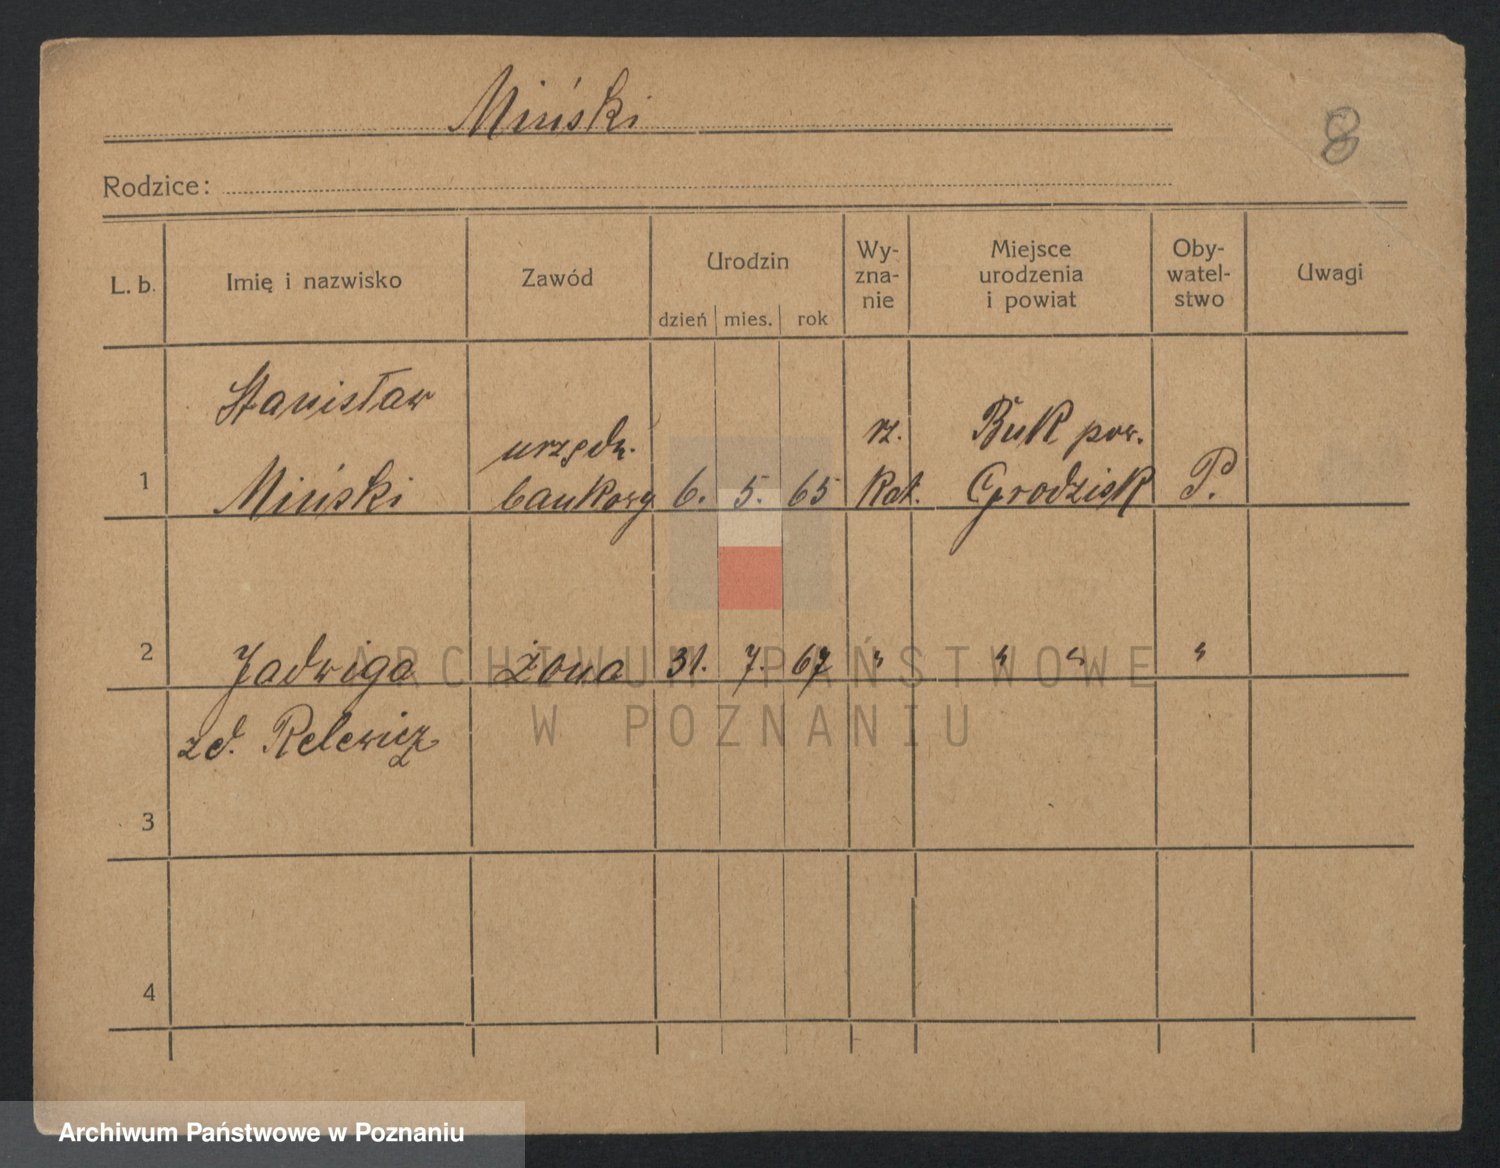 Miński
8
Rodzice:
L. b. Imię i nazwisko Zawód Urodzin dzień mies. rok Wy-zna-nie Miejsce urodzenia i powiat Oby-watel-stwo Uwagi
Stanisław
urzędn. rz. Buk pow.
1 Miński bankowy 6. 5. 65 Kat. Grodzisk P.
2 Jadwiga żona 31. 7. 67 " " " "
zd. Relewicz
3
4
ARCHIWUM PAŃSTWOWE
W POZNANIU
Archiwum Państwowe w Poznaniu